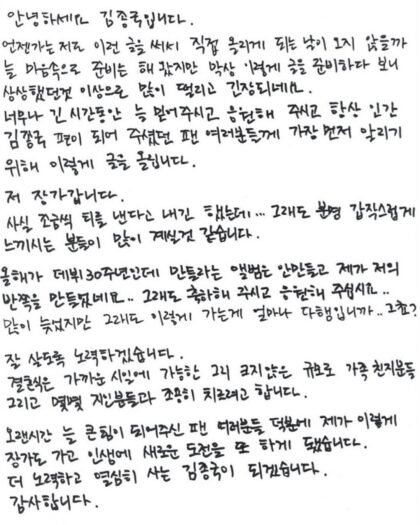 안녕하세요 김종국입니다.
언젠가는 저도 이런 글을 써서 직접 올리게 되는 날이 오지 않을까
늘 마음속으로 준비는 해 왔지만 막상 이렇게 글을 준비하다 보니
상상했던것 이상으로 많이 떨리고 긴장되네요.
너무나 긴 시간동안 늘 믿어주시고 응원해 주시고 항상 인간
김종국 편이 되어 주셨던 팬 여러분들께 가장 먼저 알리기
위해 이렇게 글을 올립니다.
저 장가갑니다.
사실 조금씩 티를 낸다고 내긴 했는데... 그래도 분명 갑작스럽게
느끼시는 분들이 많이 계실것 같습니다.
올해가 데뷔 30주년인데 만들라는 앨범은 안만들고 제가 저의
반쪽을 만들었네요.. 그래도 축하해 주시고 응원해 주십시요..
많이 늦었지만 그래도 이렇게 가는게 얼마나 다행입니까.. 그죠?
잘 살도록 노력하겠습니다.
결혼식은 가까운 시일에 가능한 그리 크지않은 규모로 가족 친지분들
그리고 몇몇 지인분들과 조용히 치르려고 합니다.
오랜시간 늘 큰 힘이 되어주신 팬 여러분들 덕분에 제가 이렇게
장가도 가고 인생에 새로운 도전을 또 하게 됐습니다.
더 노력하고 열심히 사는 김종국이 되겠습니다.
감사합니다.